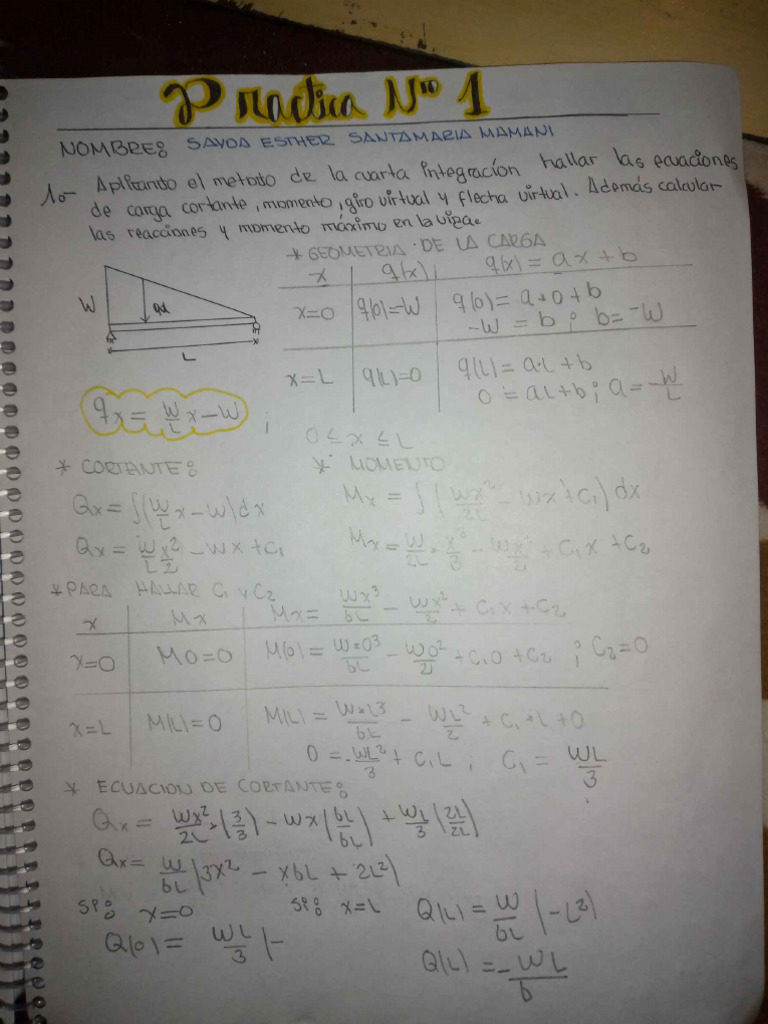 Practica Nro 1
NOMBRE: SAYDA ESTHER SANTAMARIA MAMANI
1o- Aplicando el metodo de la cuarta integración hallar las ecuaciones
de carga cortante, momento, giro virtual y flecha virtual. Además calcular
las reacciones y momento máximo en la viga.
* GEOMETRIA DE LA CARGA
x | q(x) | q(x) = ax + b
x=0 | q(0)=-W | q(0) = a*0+b
-W = b ; b = -W
x=L | q(L)=0 | q(L) = a.L+b
0 = aL+b ; a = -W/L
W
qd
L
qx = W/L x - W ;
0 ≤ x ≤ L
* CORTANTE:
Qx = ∫(W/L x - W)dx
Qx = W/L x²/2 - Wx + C1
* MOMENTO
Mx = ∫(Wx²/2L - Wx + C1)dx
Mx = W/2L * x³/3 - Wx²/2 + C1x + C2
* PARA HALLAR C1 y C2
x | Mx | Mx = Wx³/6L - Wx²/2 + C1x + C2
x=0 | M0=0 | M(0) = W*0³/6L - W0²/2 + C1 0 + C2 ; C2=0
x=L | M(L)=0 | M(L) = W*L3/6L - WL²/2 + C1*L+0
0 = -WL²/3 + C1L ; C1 = WL/3
* ECUACION DE CORTANTE:
Qx = Wx²/2L * (3/3) - Wx(6L/6L) + WL/3 (2L/2L)
Qx = W/6L (3x² - x6L + 2L²)
SP: x=0
Q(0) = WL/3 (-
SP: x=L
Q(L) = W/6L (-L²)
Q(L) = -WL/6